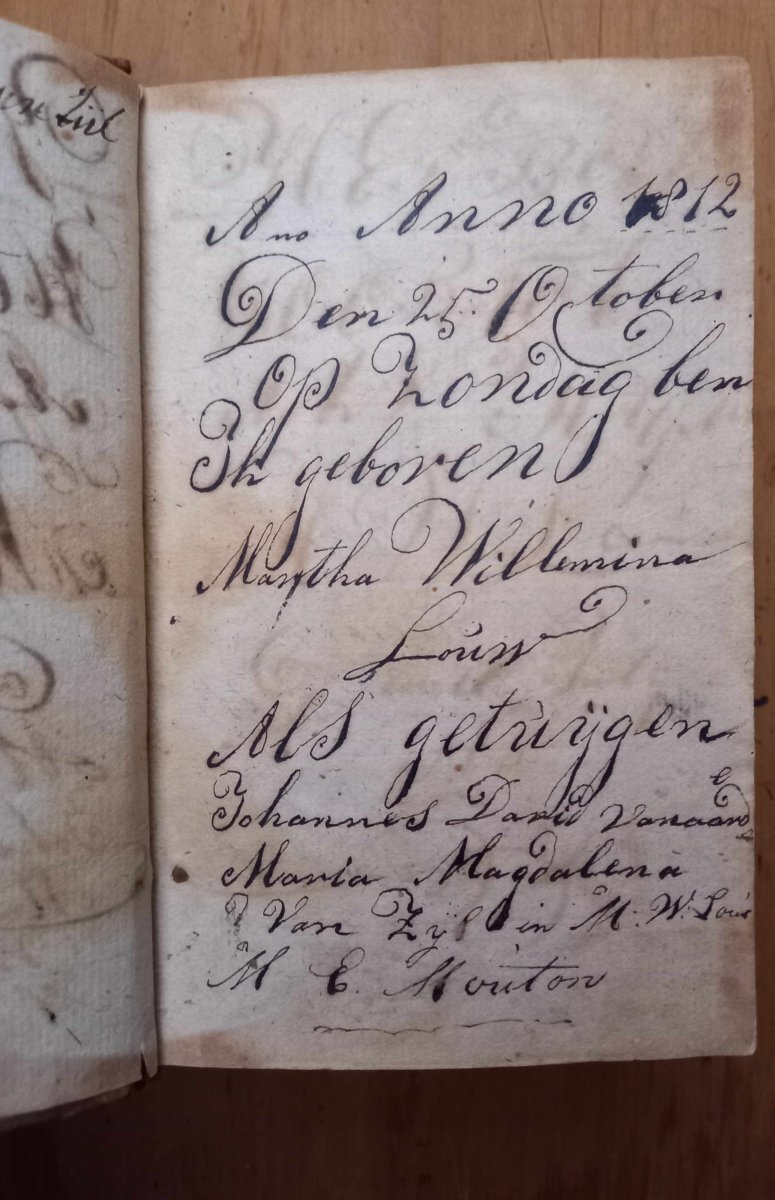 von Zül
Ano Anno 1812
Den 25 October
Op Zondag ben
Ik geboren
Martha Willemina
Louw
Als getuÿgen
Johannes David Vanaarde
Maria Magdalena
Van Zÿl in M. W. Louw
M E. Mouton